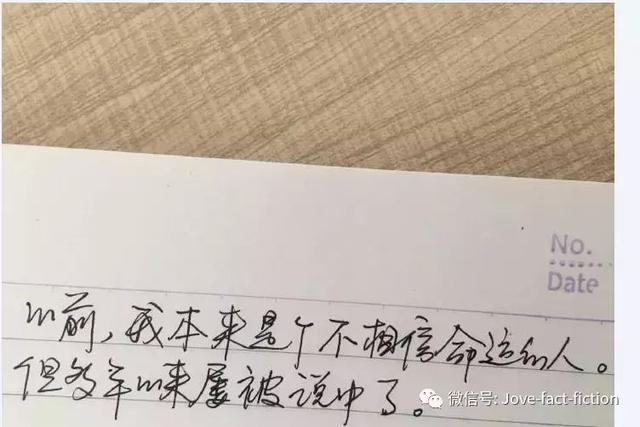 No.
Date
以前，我本来是个不相信命运的人。
但多年以来屡被说中了。
微信号: Jove-fact-fiction